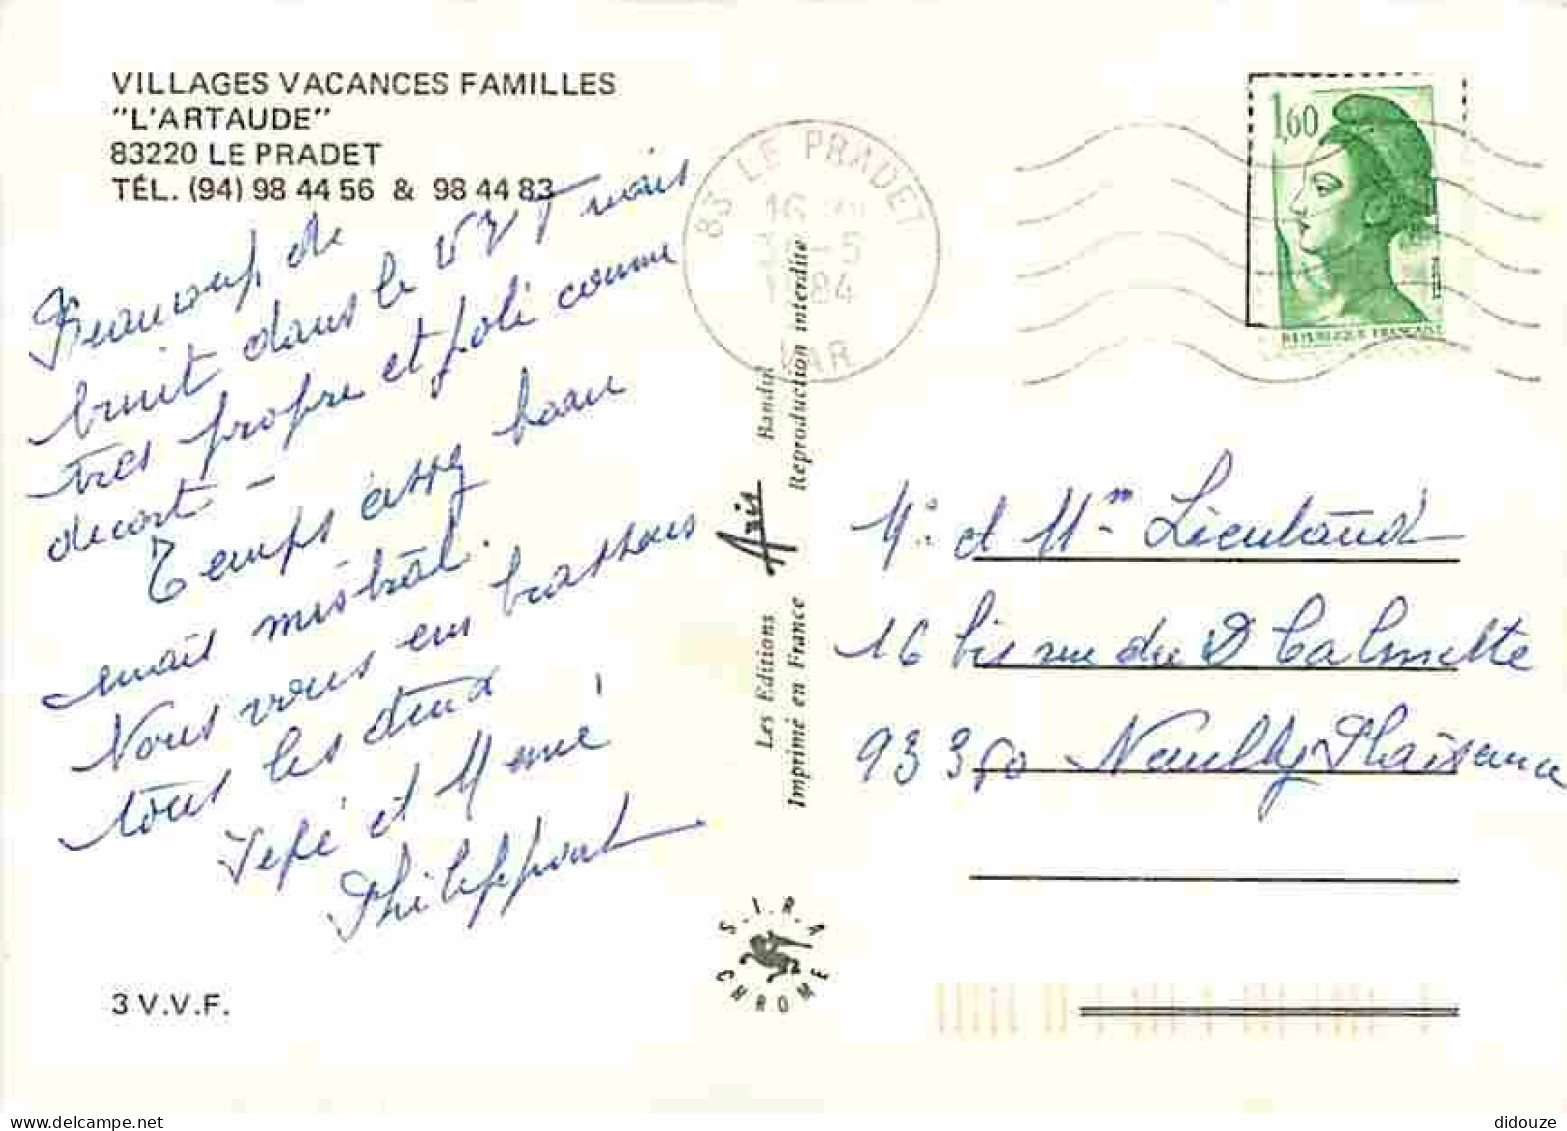 VILLAGES VACANCES FAMILLES
"L'ARTAUDE"
83220 LE PRADET
TÉL. (94) 98 44 56 & 98 44 83
Beaucoup de
bruit dans le VVF mais
très propre et joli comme
décort -
Temps assez beau
mais mistral.
Nous vous embrassons
tous les deux
Pépé et Mémé
Philippont
3 V.V.F.
83 LE PRADET
16
-5
1984
VAR
Les Editions Axis Bandol
Imprimé en France Reproduction interdite
S.I.R.A
CHROME
1,60
REPUBLIQUE FRANÇAISE
Mr et Mme Lieutaud
16 bis rue du Dr Calmette
93360 Neuilly Plaisance
didouze